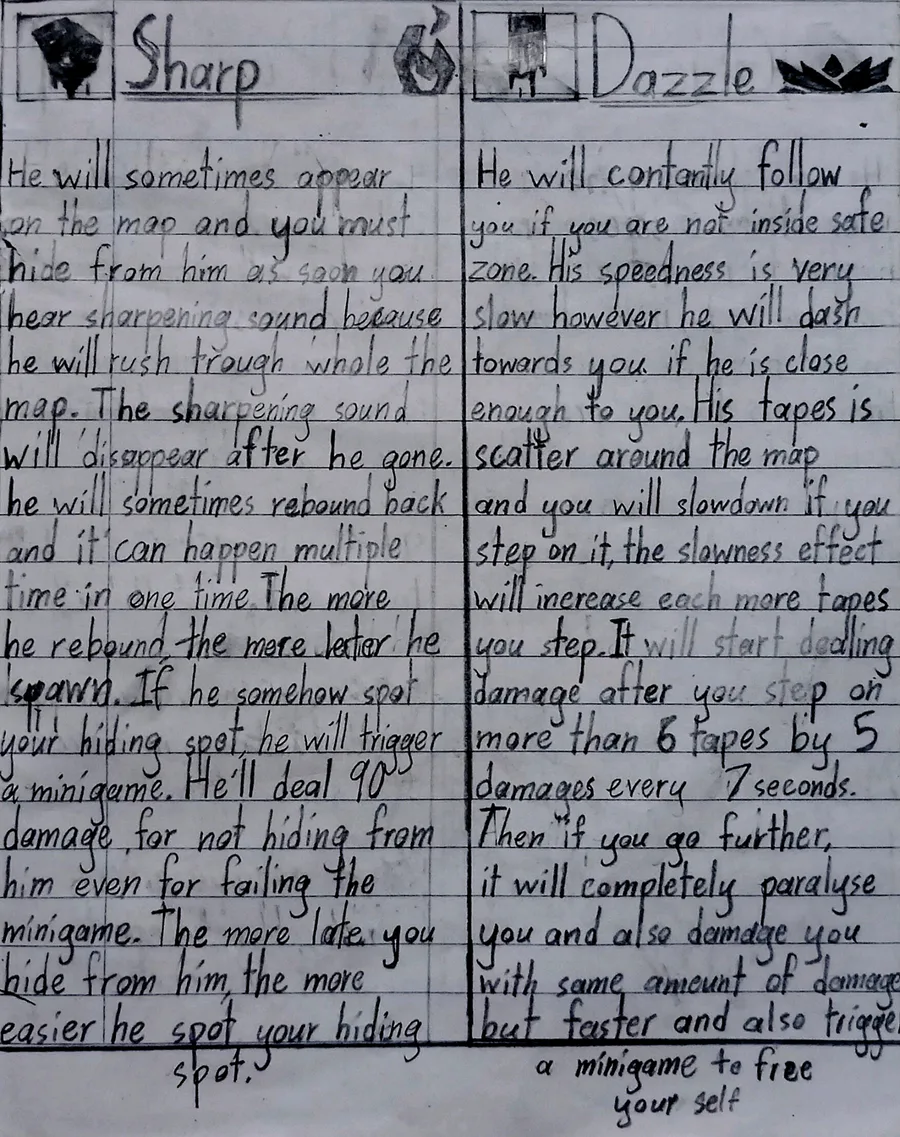 Sharp
He will sometimes appear
on the map and you must
hide from him as soon you
hear sharpening sound because
he will rush trough whole the
map. The sharpening sound
will disappear after he gone.
he will sometimes rebound back
and it can happen multiple
time in one time. The more
he rebound, the more he
spawn. If he somehow spot
your hiding spot, he will trigger
a minigame. He'll deal 90
damage for not hiding from
him even for failing the
minigame. The more late you
hide from him, the more
easier he spot your hiding
spot.
Dazzle
He will contantly follow
you if you are not inside safe
zone. His speedness is very
slow however he will dash
towards you if he is close
enough to you. His tapes is
scatter around the map
and you will slowdown if you
step on it, the slowness effect
will increase each more tapes
you step. It will start dealing
damage after you step on
more than 6 tapes by 5
damages every 7 seconds.
Then if you go further,
it will completely paralyse
you and also damage you
with same amount of damage
but faster and also trigger
a minigame to free
your self